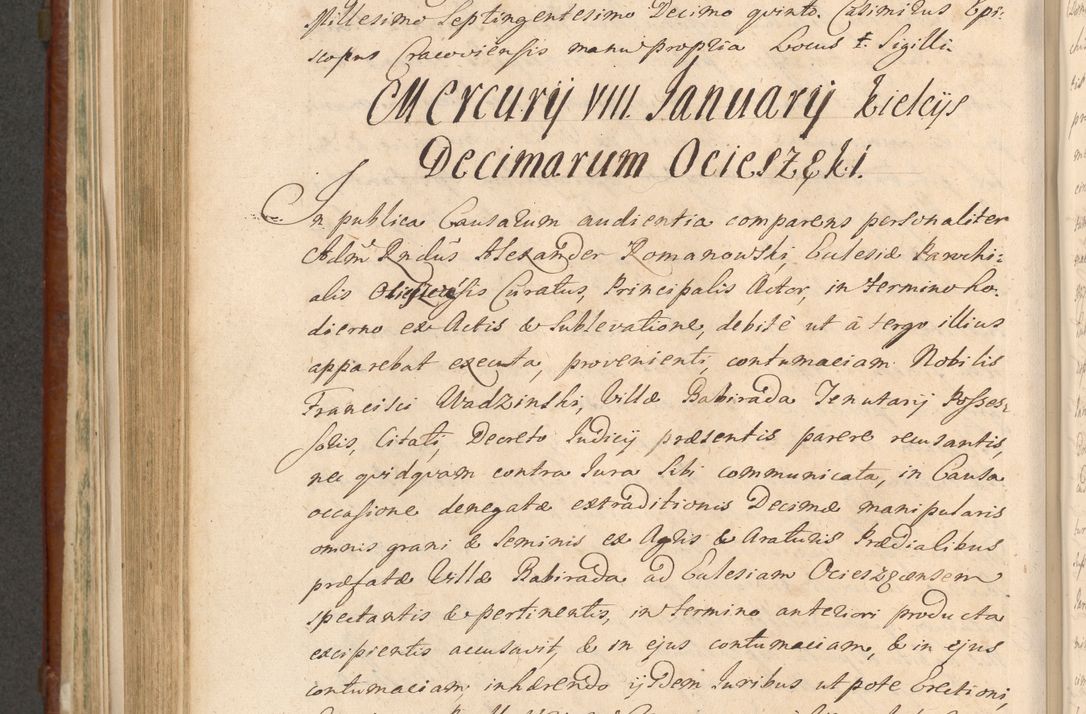 Millesimo Septingentesimo Decimo qvinto. Casimirus Epi:
scopus Cracoviensis manu propria Locus +. Sigilli.
Mercurij VIII. Januarij Kielcijs
Decimarum Ocieszęki.
In publica Causarum audientia comparens personaliter
Adm Rndus Alexander Romanowski, Eulesiæ Parochi:
alis Curatus, Principalis Actor, in termino ho.
dierno ex Actis & Sublevatione, debitè ut à tergo illius
apparebat executa, provenienti, contumaciam Nobilis
Francisci Wadzinski, Villæ Rabirada Tenutarij Posses:
soris, Citati, Decreto Judicij præsentis parere recusantis,
nec qvidqvam contra Jura Sibi communicata, in Causa
occasione denegatæ extraditionis Decimæ manipularis
omnis grani & Seminis ex Agris & Araturis Prædialibus
præfatæ Villæ Rabirada ad Eulesiam Ocieszęensem
spectantis & pertinentis, in termino anteriori producta
excipientis accusavit, & in ejus contumaciam, & in ejus
contumaciam inhærendo ijsdem Juribus utpote Erectioni,